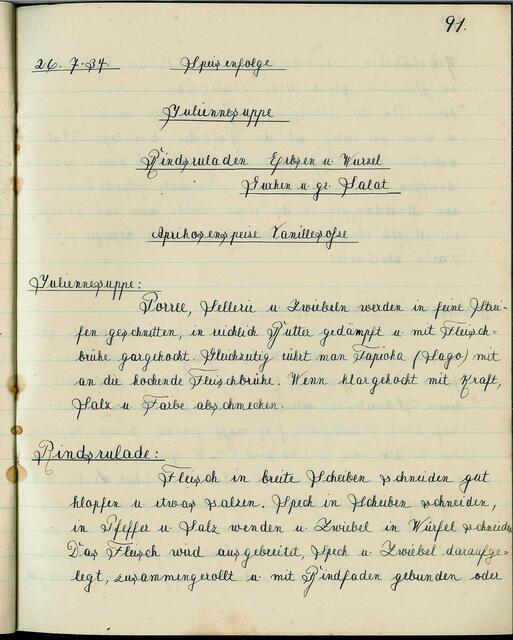 91.
26. 7. 34 Speisenfolge
Juliennesuppe
Rindsruladen Erbsen u. Wurzel
Gurken u. gr. Salat
Aprikosenspeise Vanillesoße
Juliennesuppe:
Porree, Sellerie u. Zwiebeln werden in feine Strei-
fen geschnitten, in reichlich Butter gedämpft u. mit Fleisch-
brühe gargekocht. Gleichzeitig rührt man Tapioka (Sago) mit
an die kochende Fleischbrühe. Wenn klargekocht mit Kraft,
Salz u. Farbe abschmecken.
Rindsrulade:
Fleisch in breite Scheiben schneiden gut
klopfen u. etwas salzen. Speck in Scheiben schneiden,
in Pfeffer u. Salz wenden u. Zwiebel in Würfel schneiden
Das Fleisch wird ausgebreitet, Speck u. Zwiebel daraufge-
legt, zusammengerollt u. mit Bindfaden gebunden oder